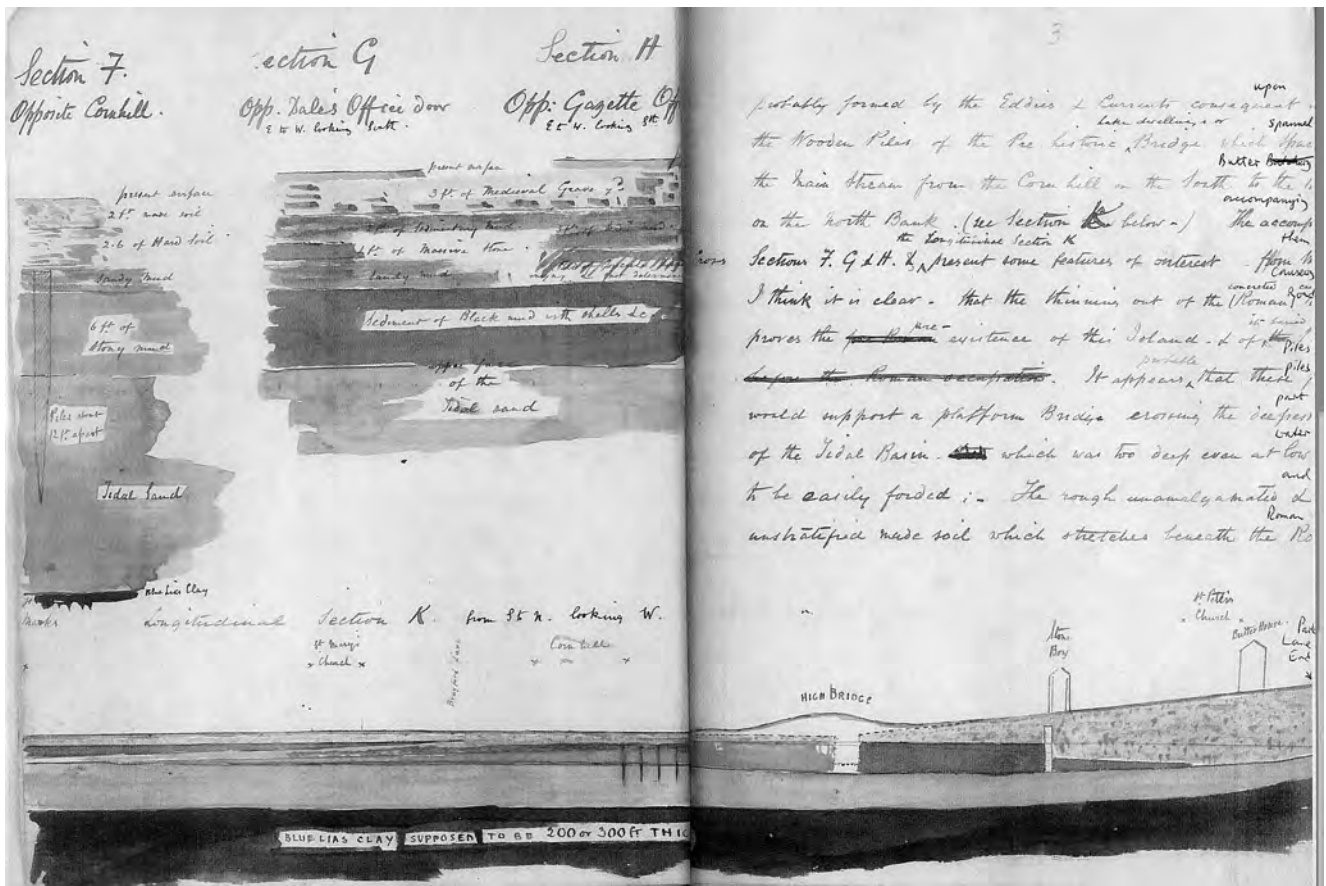 Section F.
Opposite Cornhill.
present surface
2 ft. made soil
2.6 of Hard Soil
Sandy Mud
6 ft of
Stony mud
Piles about
12 ft. apart
Tidal Sand
Blue Lias Clay
Marks
ection G
Opp. Dale's Office door
E to W. looking South.
present surface
3 ft. of Medieval Grave yd.
4 ft. of Massive stone
Sandy mud
Sediment of Black mud with shells &c
upper face
of the
Tidal sand
Section H
Opp: Gazette Off
E to W. looking Sth
Longitudinal Section K. from S to N. looking W.
St Mary's
x Church x
Brayford Lane
Cornhill
BLUE LIAS CLAY SUPPOSED TO BE 200 or 300 ft THIC
3
upon
probably formed by the Eddies & Currents consequent
Lake dwellings or
spanned
the Wooden Piles of the Pre historic Bridge which
Butter
the Main Stream from the Corn hill on the South to the
accompanying
on the North Bank (see Section K below -) The accomp
the Longitudinal Section K
them
Cross
Sections F. G & H. & present some features of interest - from
Causeway
concreted
I think it is clear - that the thinning out of the (Roman)
pre-
proves the existence of this Island - & of
Piles
before the Roman occupation. It appears probable that these
piles
part
would support a platform Bridge crossing the deepest
water
of the Tidal Basin - which was too deep even at low
and
to be easily forded ; - The rough unamalgamated &
Roman
unstratified made soil which stretches beneath the Ro
HIGH BRIDGE
Stone
Bow
St Peter's
x Church x
Butter House.
Park
Lane
End